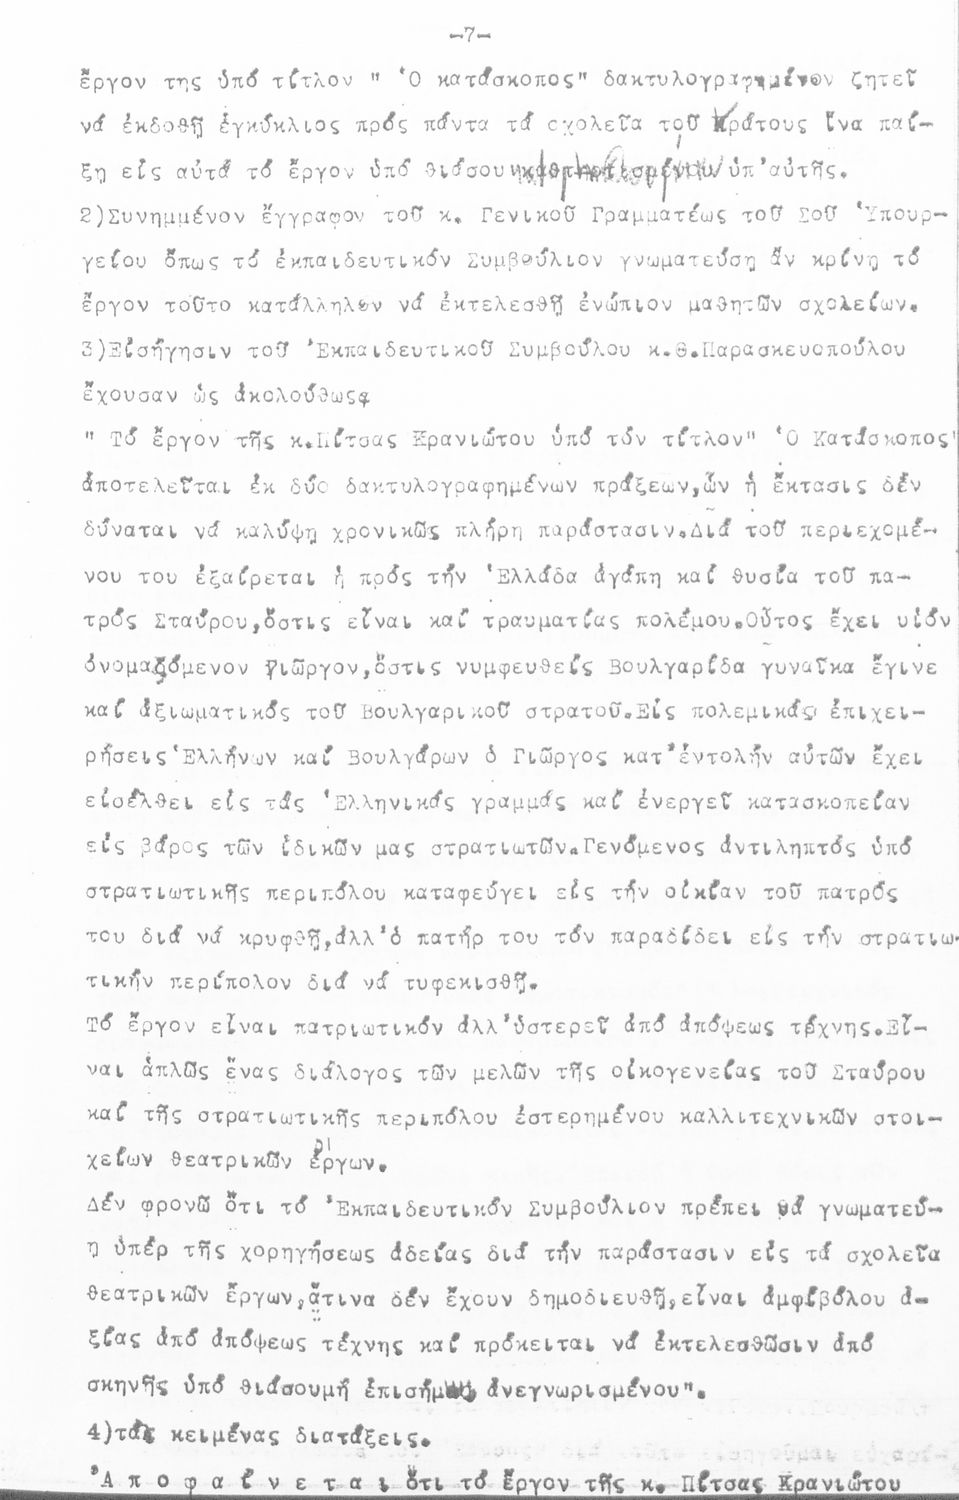 -7-
ἔργον της ὑπό τίτλον " Ὁ κατάσκοπος" δακτυλογραφημένον ζητεῖ
νά ἐκδοθῇ ἐγκύκλιος πρός πάντα τά σχολεῖα τοῦ Κράτους ἵνα παί-
ξῃ είς αὐτά τό ἔργον ὑπό θιάσου καθηρτισμένου ὑπ'αὐτῆς.
2)Συνημμένον ἔγγραφον τοῦ κ. Γενικοῦ Γραμματέως τοῦ Σοῦ Ὑπουρ-
γείου ὅπως τό ἐκπαιδευτικόν Συμβούλιον γνωματεύσῃ ἄν κρίνῃ τό
ἔργον τοῦτο κατάλληλον νά ἐκτελεσθῇ ἐνώπιον μαθητῶν σχολείων.
3)Εἰσήγησιν τοῦ Ἐκπαιδευτικοῦ Συμβούλου κ.Θ.Παρασκευοπούλου
ἔχουσαν ὡς ἀκολούθως:
" Τό ἔργον τῆς κ.Πίτσας Κρανιώτου ὑπό τόν τίτλον" Ὁ Κατάσκοπος"
ἀποτελεῖται ἐκ δύο δακτυλογραφημένων πράξεων,ὧν ἡ ἔκτασις δέν
δύναται νά καλύψῃ χρονικῶς πλήρη παράστασιν.Διά τοῦ περιεχομέ-
νου του ἐξαίρεται ἡ πρός τήν Ἑλλάδα ἀγάπη καί θυσία τοῦ πα-
τρός Σταύρου,ὅστις εἶναι καί τραυματίας πολέμου.Οὗτος ἔχει υἱόν
ὀνομαζόμενον Γιῶργον,ὅστις νυμφευθείς Βουλγαρίδα γυναῖκα ἔγινε
καί ἀξιωματικός τοῦ Βουλγαρικοῦ στρατοῦ.Εἰς πολεμικάς ἐπιχει-
ρήσεις Ἑλλήνων καί Βουλγάρων ὁ Γιῶργος κατ'ἐντολήν αὐτῶν ἔχει
εἰσέλθει είς τάς Ἑλληνικάς γραμμάς καί ἐνεργεῖ κατασκοπείαν
είς βάρος τῶν ἰδικῶν μας στρατιωτῶν.Γενόμενος ἀντιληπτός ὑπό
στρατιωτικῆς περιπόλου καταφεύγει είς τήν οἰκίαν τοῦ πατρός
του διά νά κρυφθῇ,ἀλλ'ὁ πατήρ του τόν παραδίδει είς τήν στρατιω-
τικήν περίπολον διά νά τυφεκισθῇ.
Τό ἔργον εἶναι πατριωτικόν ἀλλ'ὑστερεῖ ἀπό ἀπόψεως τέχνης.Εἶ-
ναι ἁπλῶς ἕνας διάλογος τῶν μελῶν τῆς οἰκογενείας τοῦ Σταύρου
καί τῆς στρατιωτικῆς περιπόλου ἐστερημένου καλλιτεχνικῶν στοι-
χείων θεατρικῶν ἔργων.
Δέν φρονῶ ὅτι τό Ἐκπαιδευτικόν Συμβούλιον πρέπει νά γνωματεύ-
ῃ ὑπέρ τῆς χορηγήσεως ἀδείας διά τήν παράστασιν είς τά σχολεῖα
θεατρικῶν ἔργων,ἅτινα δέν ἔχουν δημοδιευθῇ,εἶναι ἀμφίβόλου ἀ-
ξίας ἀπό ἀπόψεως τέχνης καί πρόκειται νά ἐκτελεσθῶσιν ἀπό
σκηνῆς ὑπό θιάσουμή ἐπισήμως ἀνεγνωρισμένου".
4)τάς κειμένας διατάξεις.
Ἀ π ο φ α ί ν ε τ α ι ὅτι τό ἔργον τῆς κ. Πίτσας Κρανιώτου